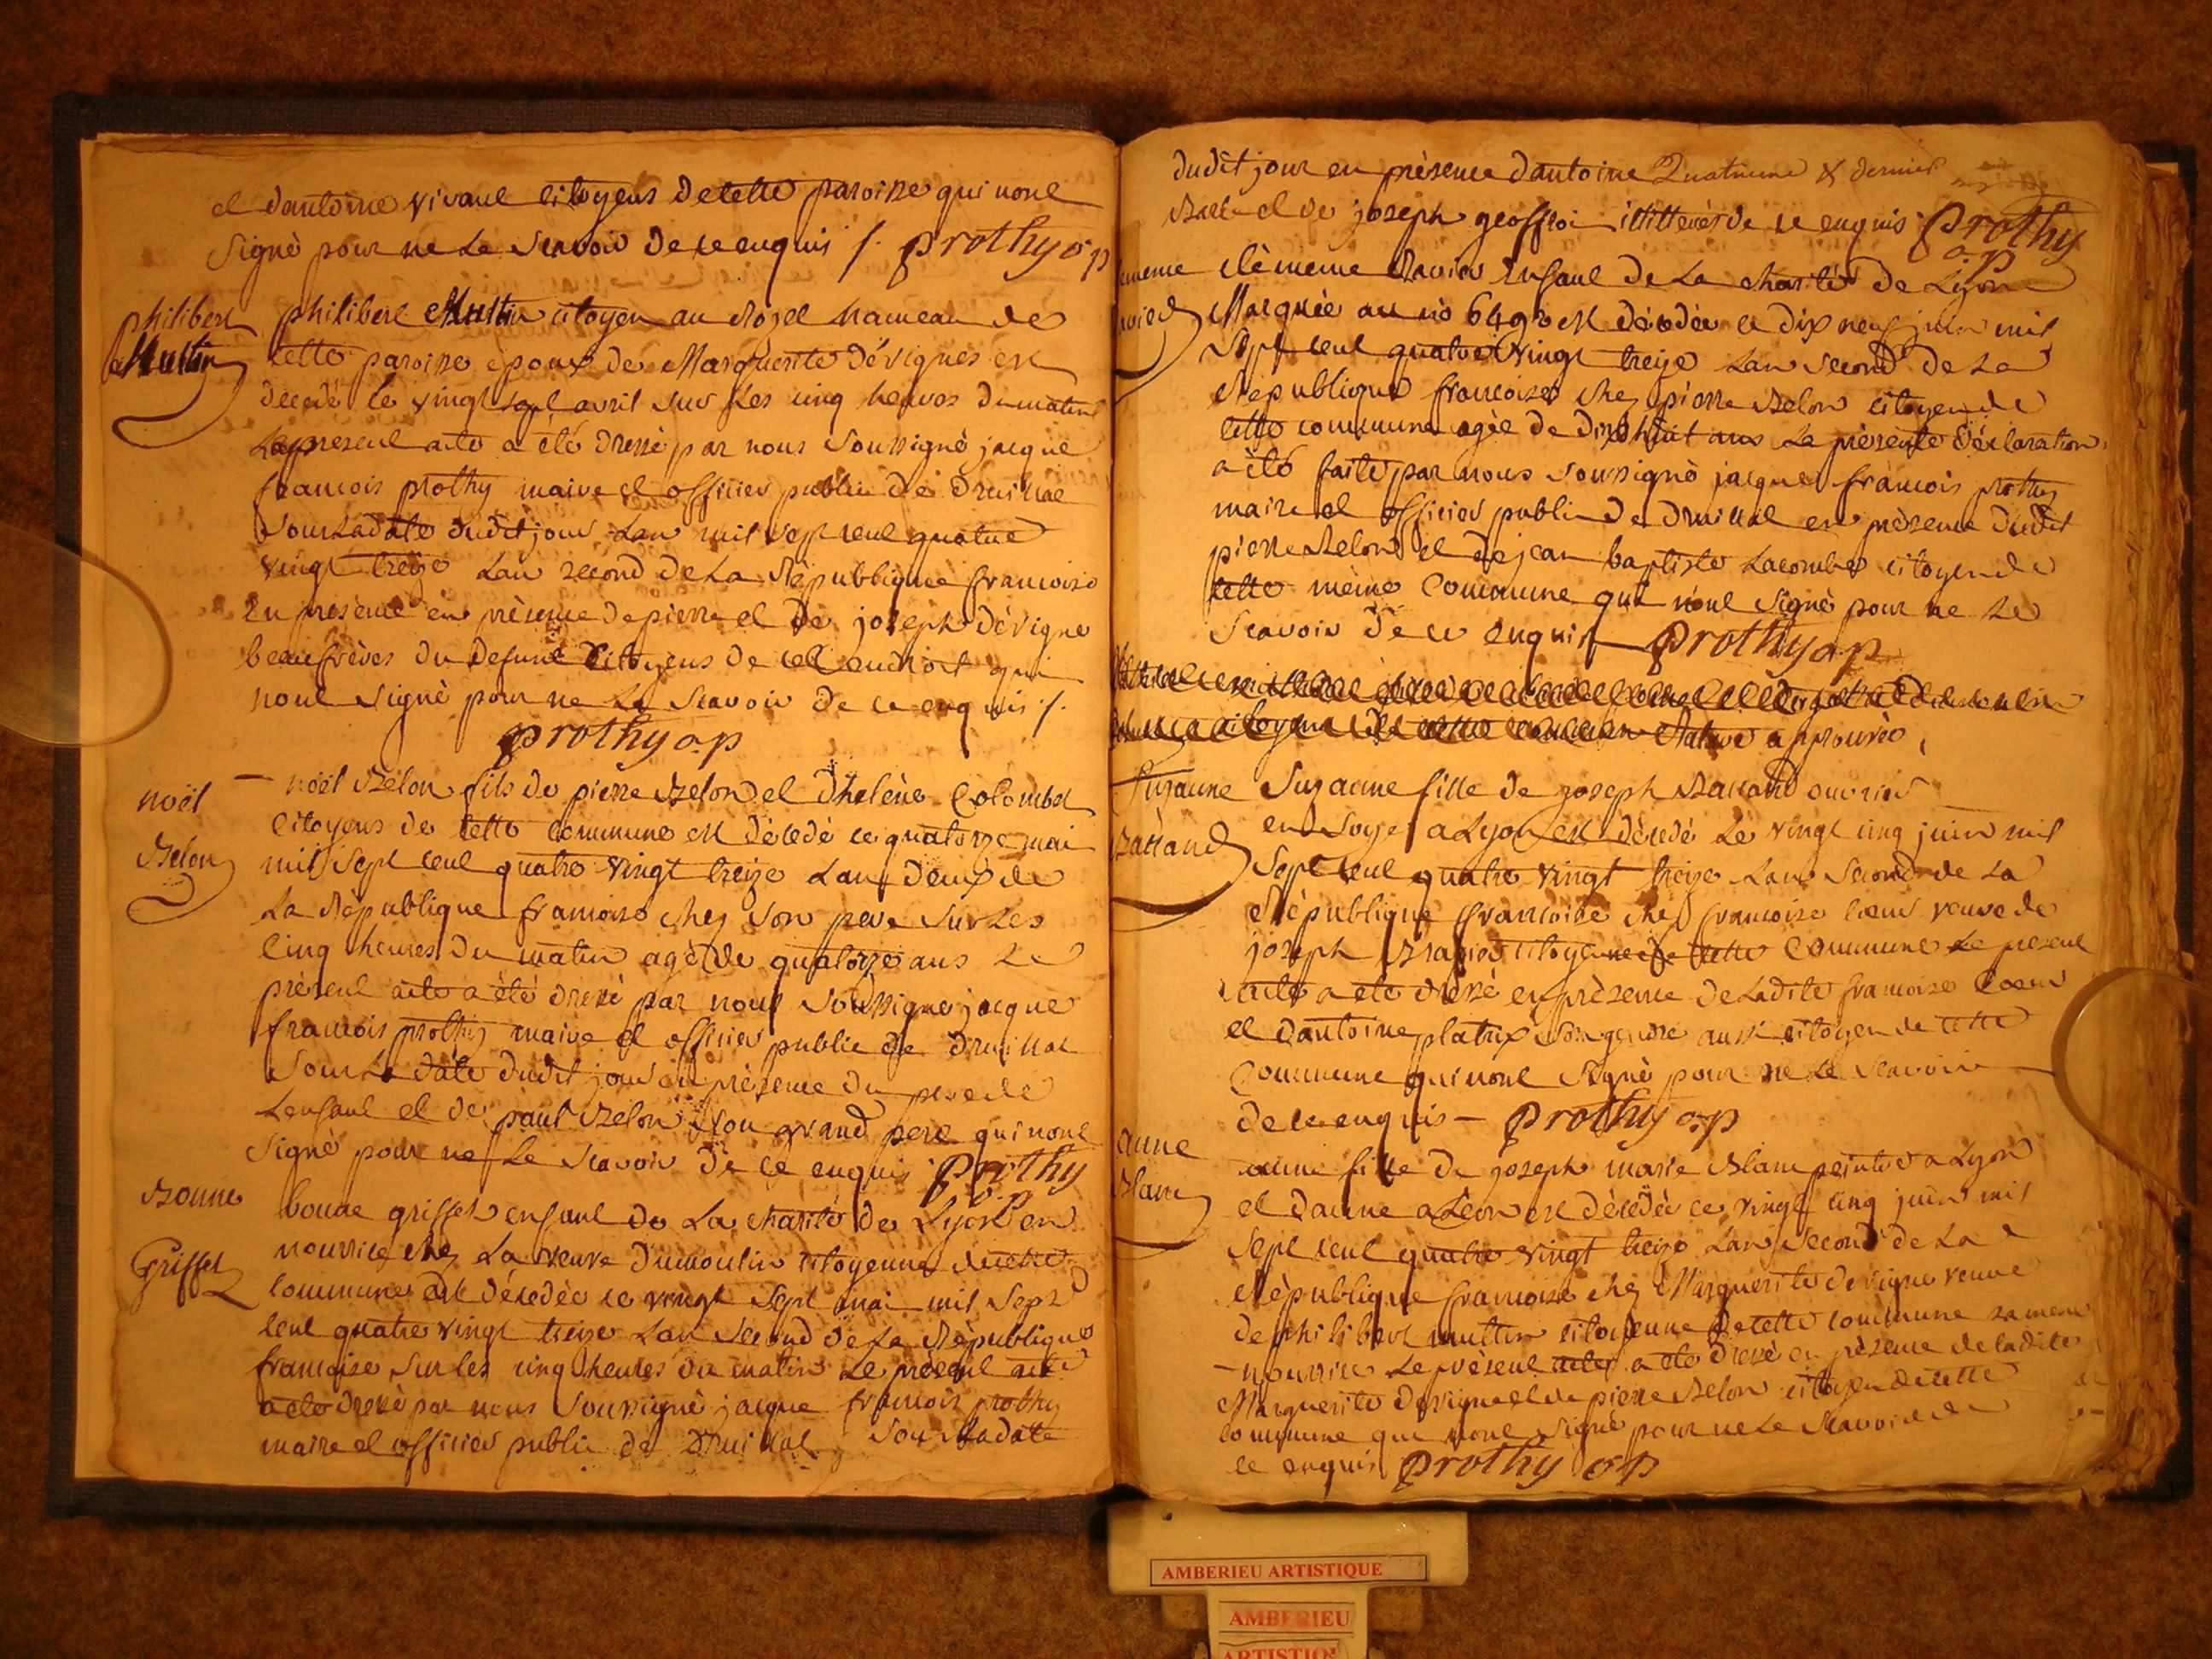 et dantoine vivant citoyens decette paroisse qui nont
Signé pour ne Le Scavoir de ce enquis /. prothy o p
philibert
Muttin
philibert Muttin citoyen au hameau de
cette paroisse epoux de Marguerite dévignes est
décédé le vingt sept avril sur Les cinq heures du matin
Le present acte a été dressé par nous Soussigné jacque
francois prothy maire et officier public de druillat
Sous La date dudit jour Lan mil sept cent quatre
vingt treize Lan second de La République francoise
En presence en présence de pierre et de joseph dévigne
beaufrères du defunt citoyens de cet endroit qui
nont Signé pour ne Le Scavoir de ce enquis /.
prothy o.p
noël
Belon
noël Belon fils de pierre Belon et dhelène Colombet
Citoyens de cette commune est décedé ce quatorze mai
mil Sept cent quatre vingt treize Lan deux de
La République francoise chez Son pere Sur Les
Cinq heures du matin agé de quatorze ans Le
présent acte a été dressé par nous Soussigné jacque
francois prothy maire et officier public de druillat
Sous La date dudit jour en présence du pere de
Lenfant et de paul Belon Son grand pere qui nont
Signé pour ne Le Scavoir de ce enquis prothy
o.p
Bonne
Griffet
bonne griffet enfant de La charité de Lyon en
nourrice chez La veuve dumoulin citoyenne de cette
commune est décedée ce vingt Sept mai mil Sept
cent quatre vingt treize Lan Second de La République
francoise Sur les cinq heures du matin Le présent acte
a été dressé par nous Soussigné jacque francois prothy
maire et officier public de druillat Sous La date
dudit jour en présence dantoine Quatrieme & dernier
et de joseph geoffroi illitterés de ce enquis prothy
o.p
Clémence enfant de La charité de Lyon
Marquée au nò est décédée ce dix neuf juin mil
Sept cent quatre vingt treize Lan Second de La
République francoise chez pierre Belon citoyen de
cette commune agée de dix huit ans La présente déclaration
a été faite par nous Soussigné jacque francois prothy
maire et officier public de druillat en présence dudit
pierre Belon et de jean baptiste Lacombe citoyen de
cette même Commune qui nont Signé pour ne Le
Scavoir de ce enquis prothy o.p
Rature approuvée
Suzanne
Suzanne fille de joseph ouvrier
en Soye a Lyon est décédé Le vingt cinq juin mil
Sept cent quatre vingt treize Lan Second de La
République francoise chez francoise Coeur veuve de
joseph citoyenne de cette Commune Le present
acte a été dressé en présence de Ladite francoise Coeur
et dantoine platrix Son gendre aussi citoyen de cette
Commune qui nont Signé pour ne Le Scavoir
de ce enquis — prothy o.p
anne
Blanc
anne fille de joseph marie Blanc peintre a Lyon
et danne est décédée ce vingt cinq juin mil
Sept cent quatre vingt treize Lan Second de La
République francoise chez Marguerite devigne veuve
de philibert muttin citoyenne de cette commune sa mere
nourrice Le présent acte a été dressé en présence de ladite
Marguerite devigne et de pierre Belon citoyen de cette
commune qui nont Signé pour ne Le Scavoir de
ce enquis prothy o p
AMBERIEU ARTISTIQUE
AMBERIEU
ARTISTIQ